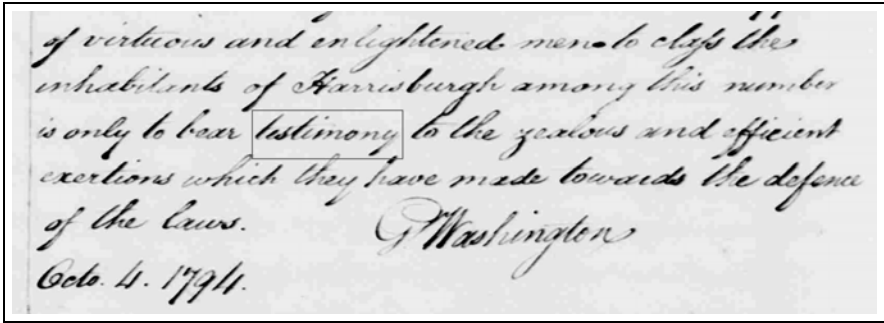 of virtuous and enlightened men. to claſs the
inhabitants of Harrisburgh among this number
is only to bear testimony to the zealous and efficient
exertions which they have made towards the defence
of the laws.
G Washington
Octo. 4. 1794.